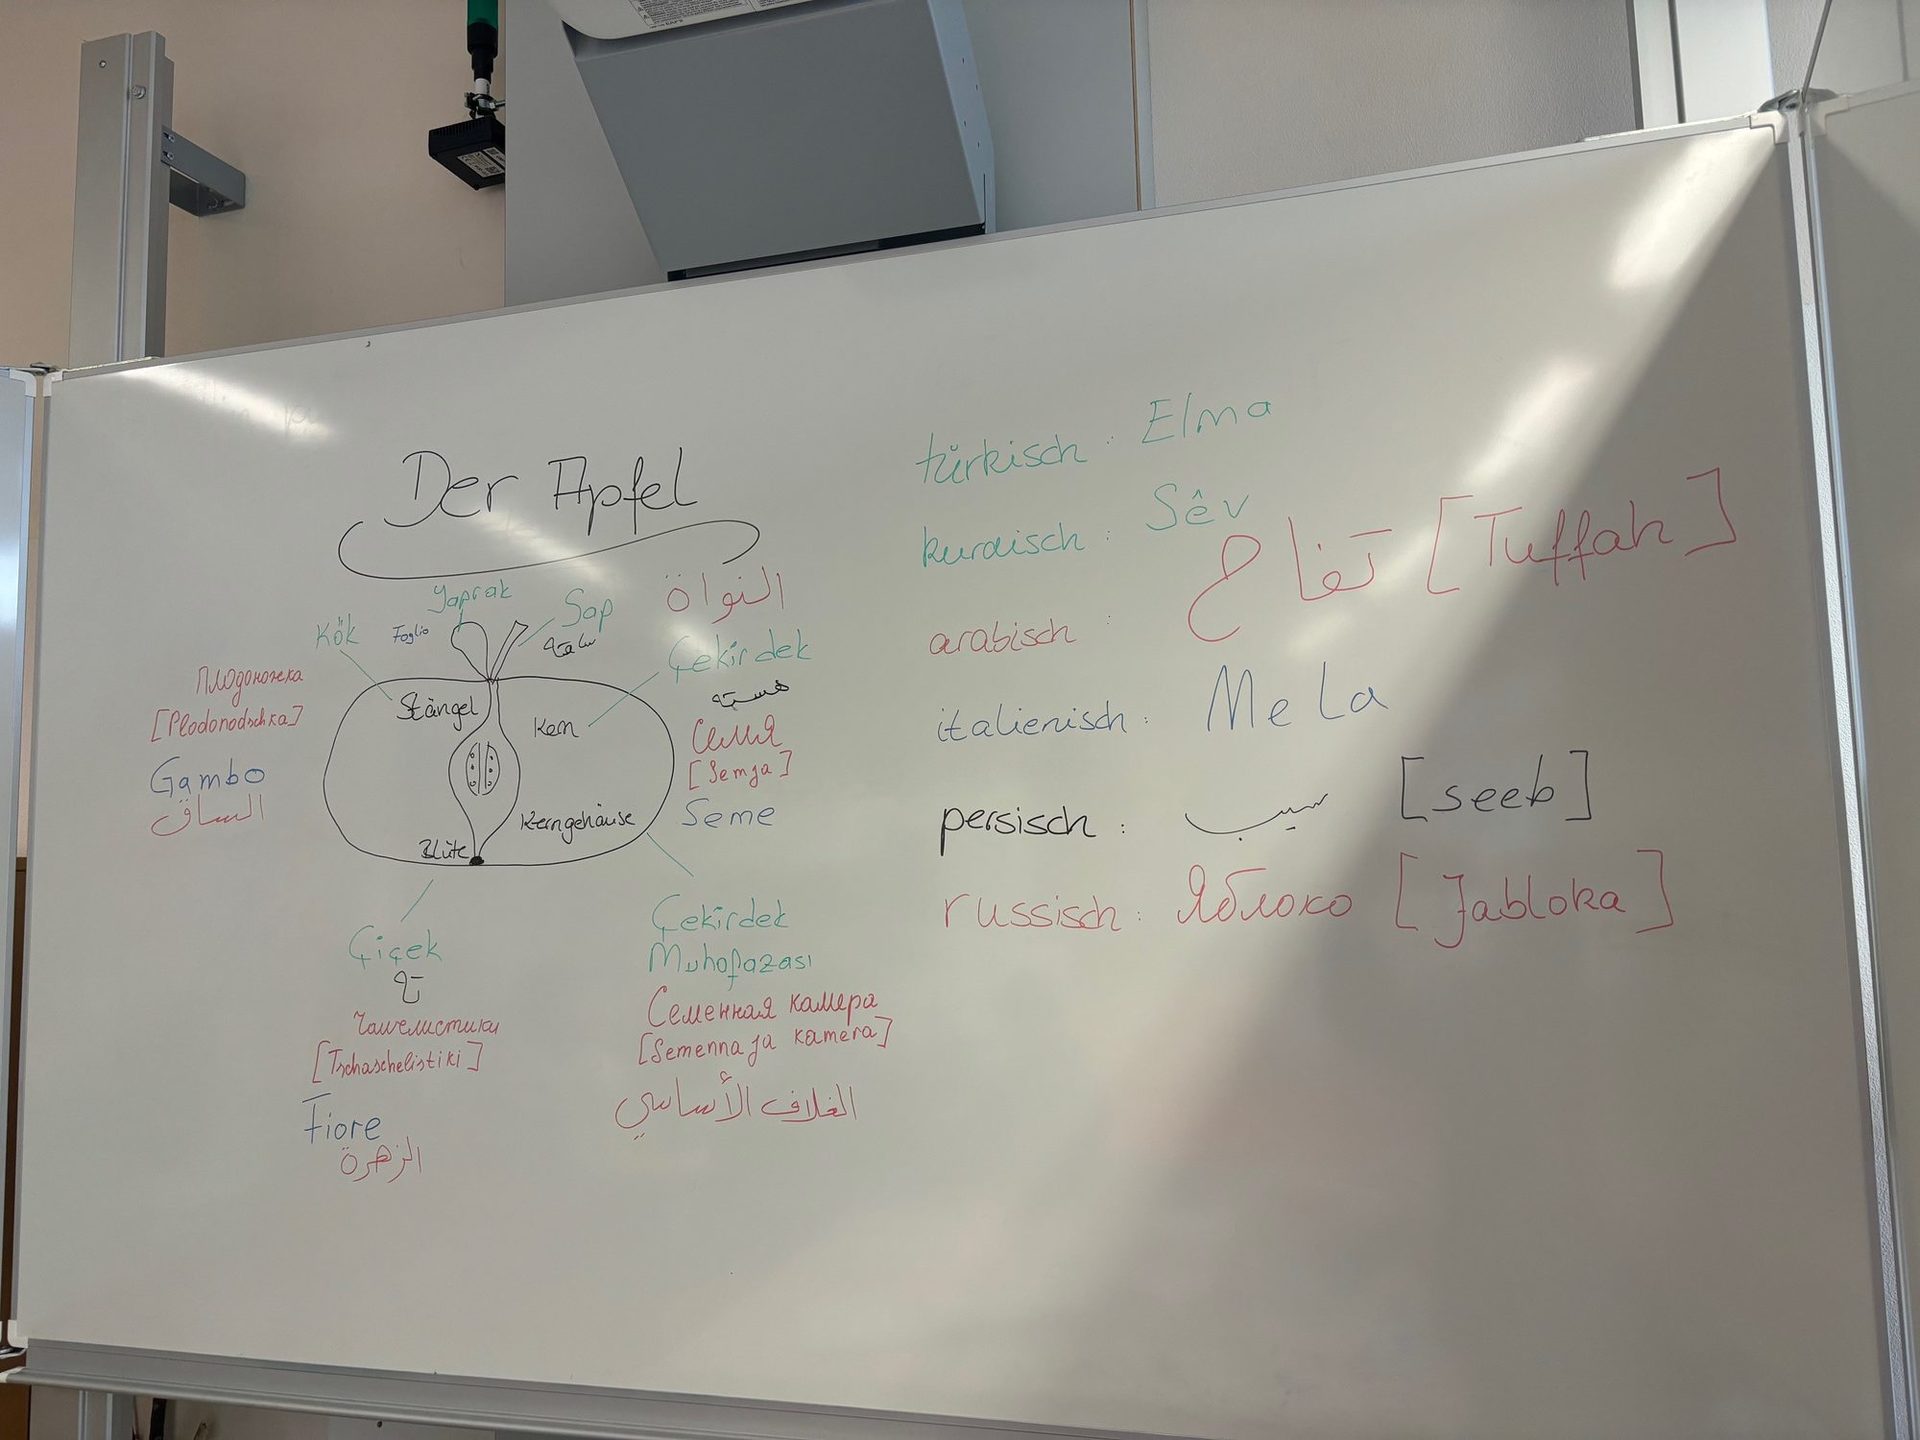 Der Apfel
Yaprak
Foglio
Sap
ساقه
النواة
Kök
Çekirdek
هسته
Плодоножка
[Plodonodschka]
Stängel
Kern
Семя
[Semja]
Gambo
الساق
Seme
Kerngehäuse
Blüte
Çiçek
Чашелистики
[Tschaschelistiki]
Fiore
الزهرة
Çekirdek
Muhofazası
Семенная камера
[Semennaja kamera]
الغلاف الأساسي
türkisch: Elma
kurdisch: Sêv
arabisch: تفاح [Tuffah]
italienisch: Mela
persisch: سیب [seeb]
russisch: Яблоко [Jabloka]